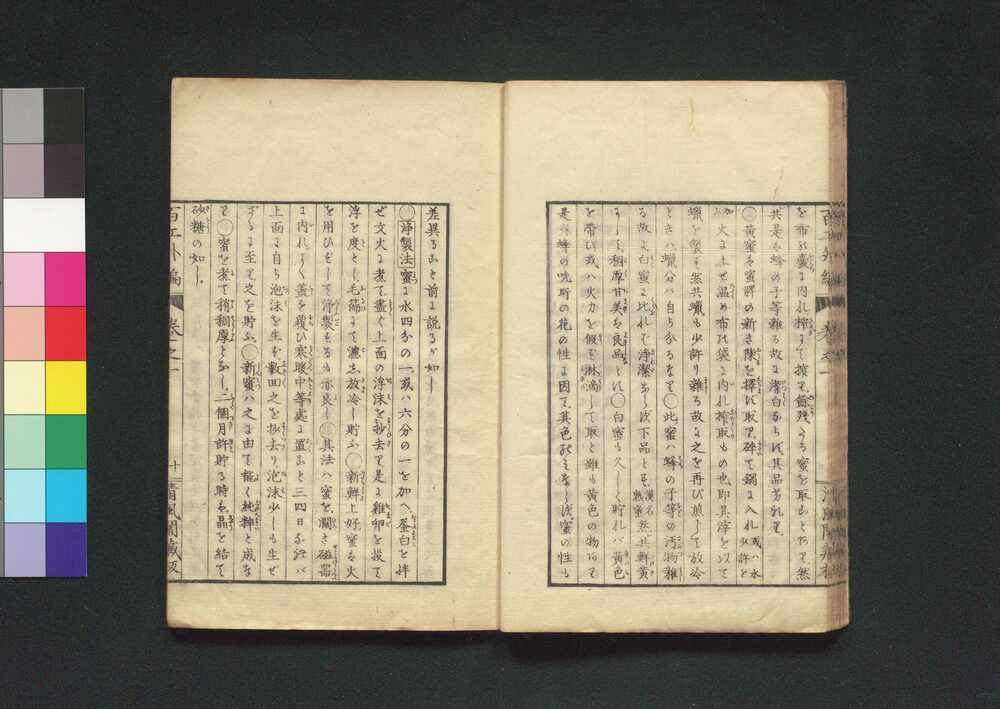 を布の嚢に内れ搾りて搾り餘残たる蜜を取ることあり然
共是は蜂の子等雜る故に潔白ならず其品劣れり
○黄蜜は蜜脾の新き陳を擇ばず取り碎て鍋に入れ或ハ水少許を
加へ火に上せ温め布の袋に内れ搾取もの也即其滓を以て
蠟を製す然共蠟も少許り雜る故に之を再び煎じて放冷
ときハ蠟分ハ自ら分るなり○此蜜ハ蜂の子等の汚物雜
る故に白蜜に比れば淨潔ならず下品とす漢名熟蜜然共鮮黄
にして稠厚甘美なる良品とす○白蜜も久しく貯れバ黄色
を帶び或ハ火力を假ず淋滴して取と雖も黄色の物あり
是ハ蜂の吮所の花の性に因て其色形を異にし蜜の性も
差異ること前に説るが如し
○淨製法蜜に水四分の一或ハ六分の一を加へ蛋白と拌
ぜ文火に煮て盡く上面の浮沫を抄去り是に雞卵を投て
浮を度とし毛篩にて濾し放冷し貯ふ○新鮮上好蜜は火
を用ひずして淨製するも亦良し○其法ハ蜜を濶き磁器
に内れよく蓋を覆ひ寒暖中等處に置こと三四日を經バ
上面に自ら泡沫を生ず數回之を抄去り泡沫少しも生ぜ
ざるに至り之を貯ふ○新蜜ハ之に由て能く純粹と成な
り○蜜を煮て稍稠厚となし二個月許貯る時は晶を結て
砂糖の如し
百工外編 卷之一 十 清風閣藏版